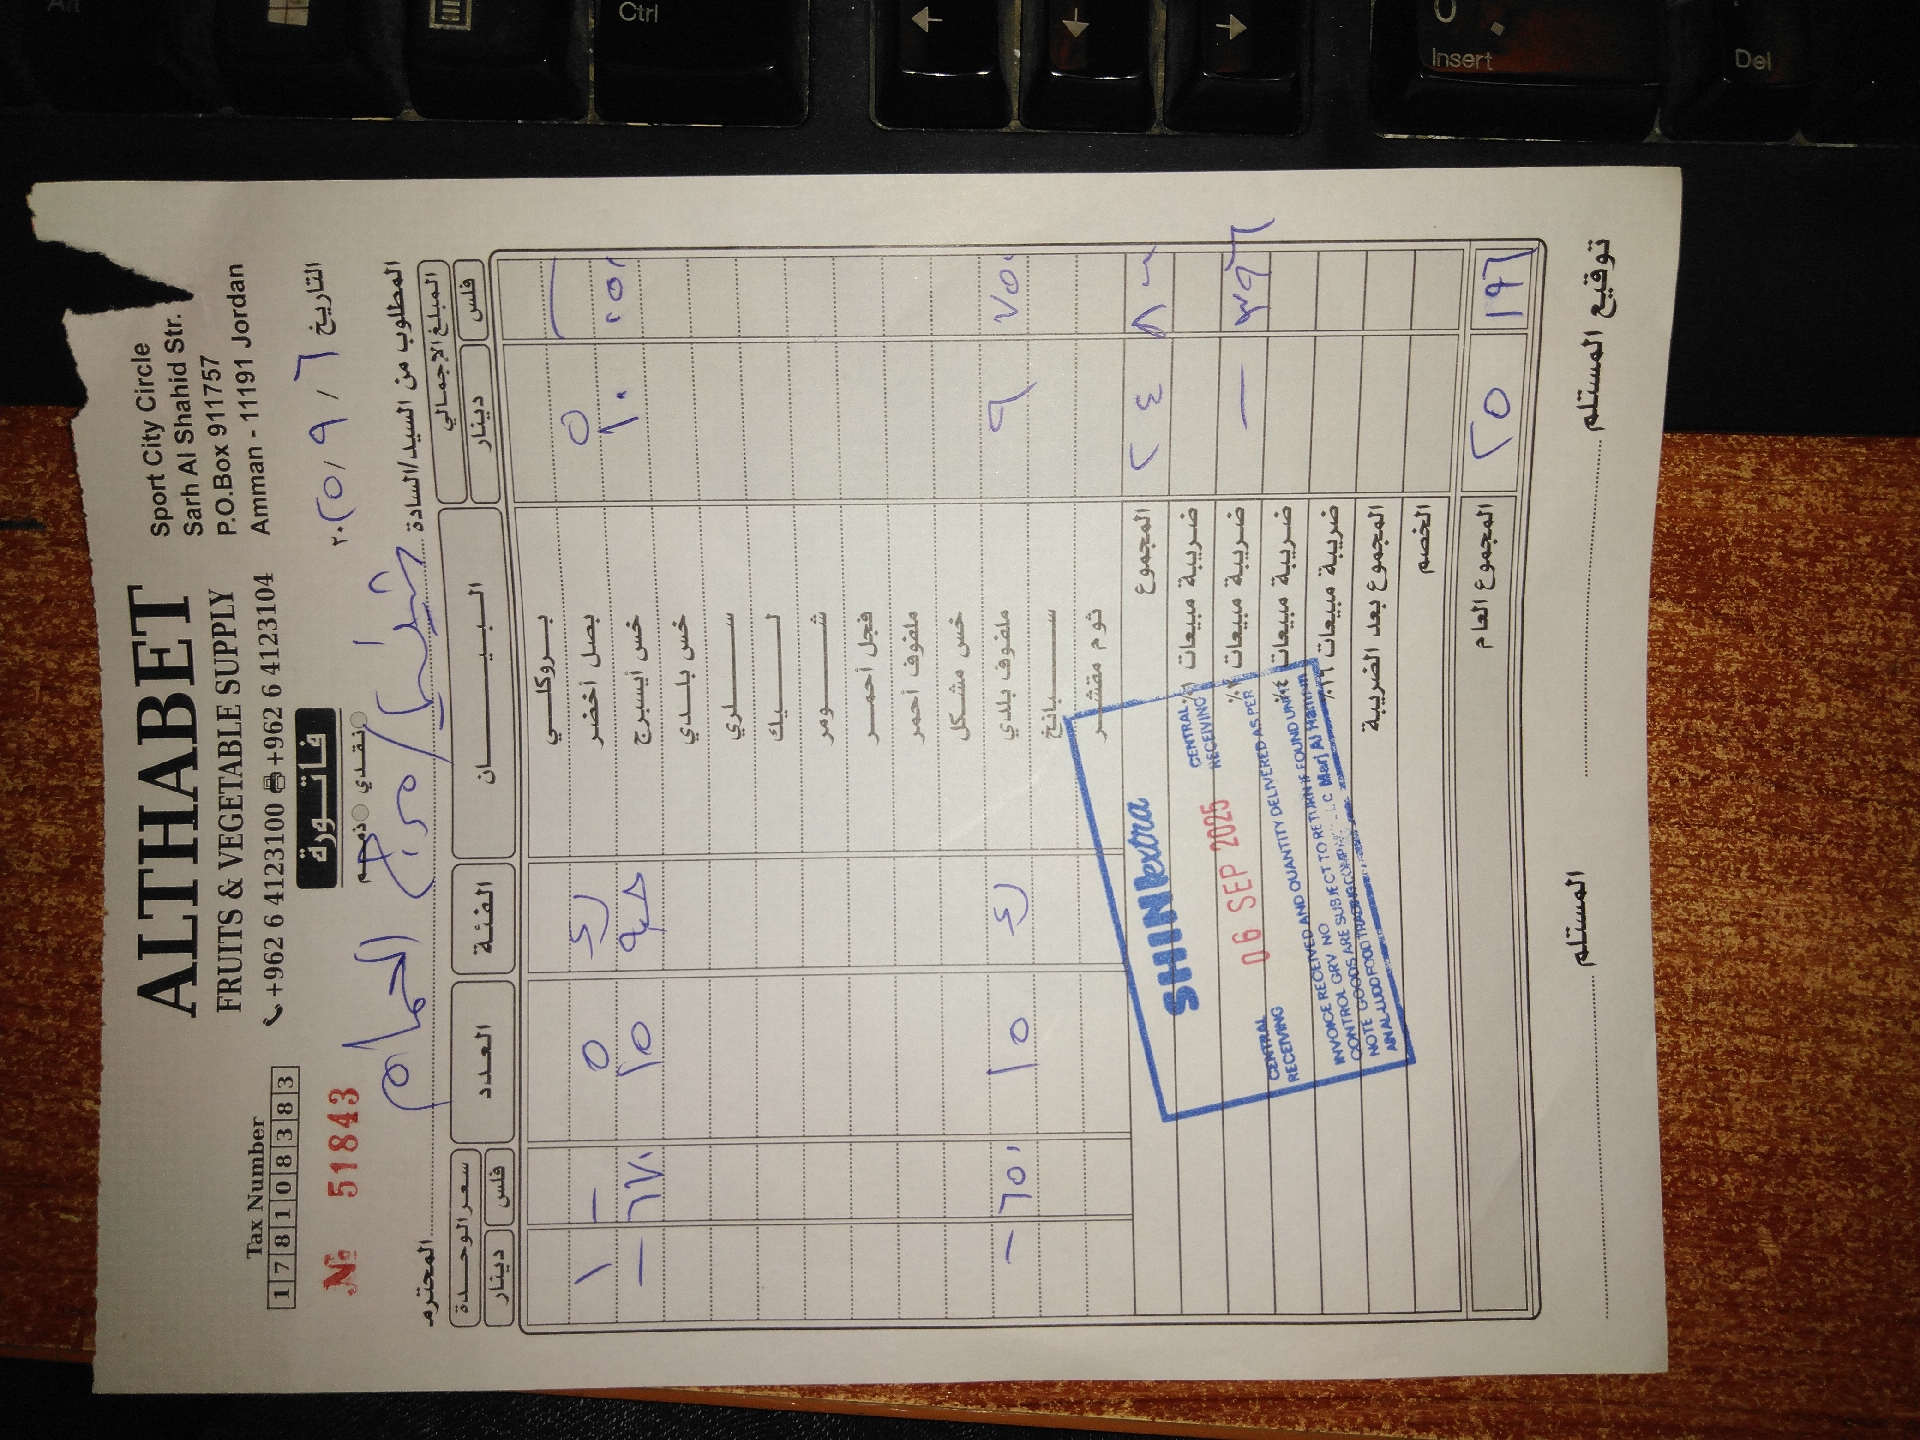 ALTHABET
FRUITS & VEGETABLE SUPPLY
+962 6 4123100 +962 6 4123104
Sport City Circle
Sarh Al Shahid Str.
P.O.Box 911757
Amman - 11191 Jordan
Tax Number
178108383
فاتورة
نقدي ذمم
№ 51843
التاريخ ٦ / ٩ / ٢٠٢٥
المطلوب من السيد/السادة / مرج الحمام المحترم
المبلغ الإجمالي البيــــــان الفئة العدد سعر الوحدة
فلس دينار فلس دينار
بروكلي
بصل أخضر ٥ — ٥ ١ —
خس أيسبرج ١٠ ٠٥٠ ١٥ — ٦٧٠
خس بلدي
سلري
ليك
شومر
فجل أحمر
ملفوف أحمر
خس مشكل
ملفوف بلدي ٩ ٧٥٠ ١٥ — ٦٥٠
سبانخ
ثوم مقشر
المجموع ٢٤ ٨٠٠
ضريبة مبيعات
ضريبة مبيعات — ٣٩٦
ضريبة مبيعات ٤٪
ضريبة مبيعات ١٦٪
المجموع بعد الضريبة
الخصم
المجموع العام ٢٥ ١٩٦
SHINI extra
CENTRAL RECEIVING
06 SEP 2025
CENTRAL RECEIVING
INVOICE RECEIVED AND QUANTITY DELIVERED AS PER
CONTROL GRV NO
NOTE GOODS ARE SUBJECT TO RETURN IF FOUND
Marj Al Hamam
المستلم
توقيع المستلم
Alt
Ctrl
←
↓
→
0
Insert
.
Del